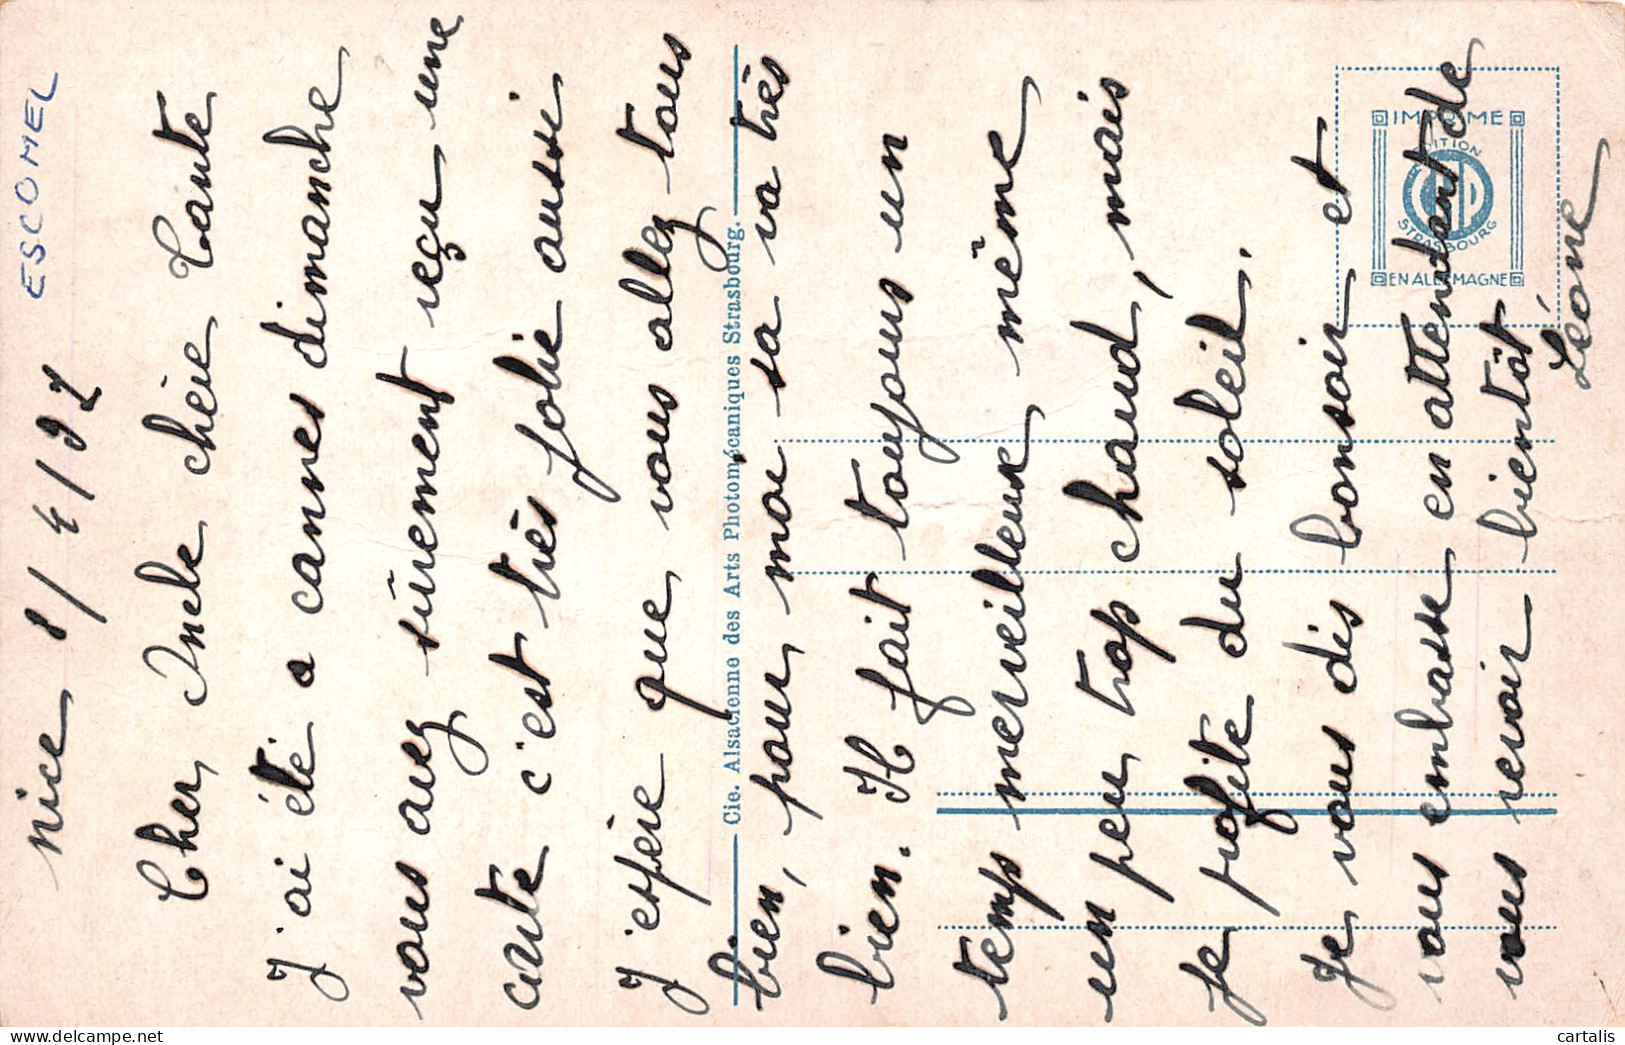 ESCOMEL
Nice 8/4/32
Cher Oncle chère Tante
J'ai été a cannes dimanche
vous avez sûrement reçu une
carte c'est très jolie aussi
J'espère que vous allez tous
bien, pour moi sa va très
bien. Il fait toujours un
temps merveilleux même
un peu trop chaud, mais
je profite du soleil.
Je vous dis bonsoir et
vous embasse en attendant de
vous revoir bientôt
Léone
Cie. Alsacienne des Arts Photomécaniques Strasbourg.
IMPRIMÉ
EDITION
CAP
STRASBOURG
EN ALLEMAGNE
cartalis